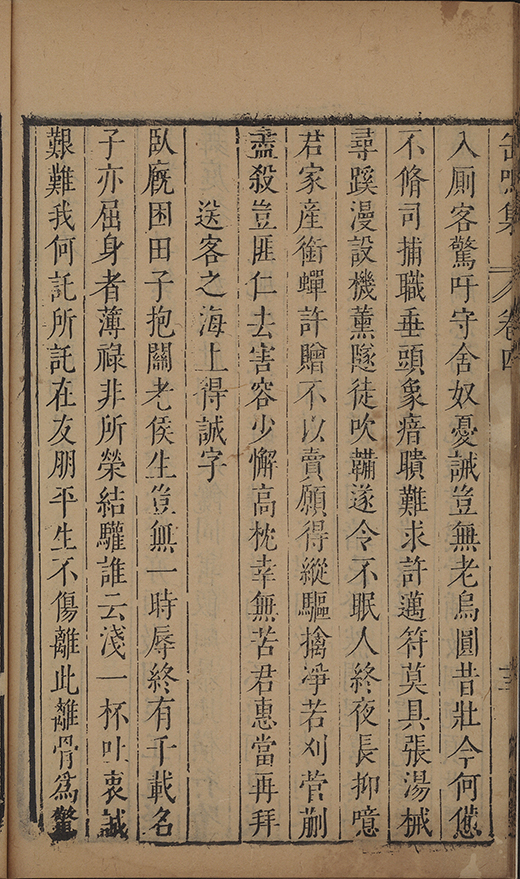 缶鳴集 卷四 十三
入厠客驚吁守舍奴憂誡豈無老烏圓昔壯今何憊
不脩司捕職垂頭象瘖聵難求許邁符莫具張湯械
尋蹊漫設機薰隧徒吹鞴遂令不眠人終夜長抑噫
君家産銜蟬許贈不以賣願得縱驅擒凈若刈菅蒯
盡殺豈匪仁去害容少懈高枕幸無苦君惠當再拜
送客之海上得誠字
臥廐困田子抱關老侯生豈無一時辱終有千載名
子亦屈身者薄祿非所榮結驩誰云淺一杯吐衷誠
艱難我何託所託在友朋平生不傷離此離骨爲驚